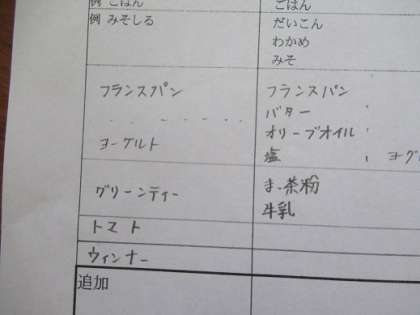 例 ごはん ごはん
例 みそしる だいこん
わかめ
みそ
フランスパン フランスパン
バター
オリーブオイル
ヨーグルト 塩 ヨーグ
グリーンティー ま、茶粉
牛乳
トマト
ウィンナー
追加